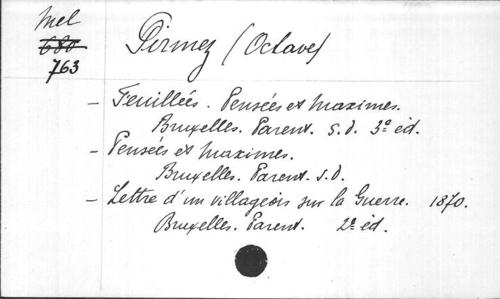 Mel
680
763
Pirmez (Octave)
- Feuillées. Pensées et Maximes.
Bruxelles. Parent. s.d. 3e éd.
- Pensées et Maximes.
Bruxelles. Parent. s.d.
- Lettre d'un villageois sur la Guerre. 1870.
Bruxelles. Parent. 2e éd.